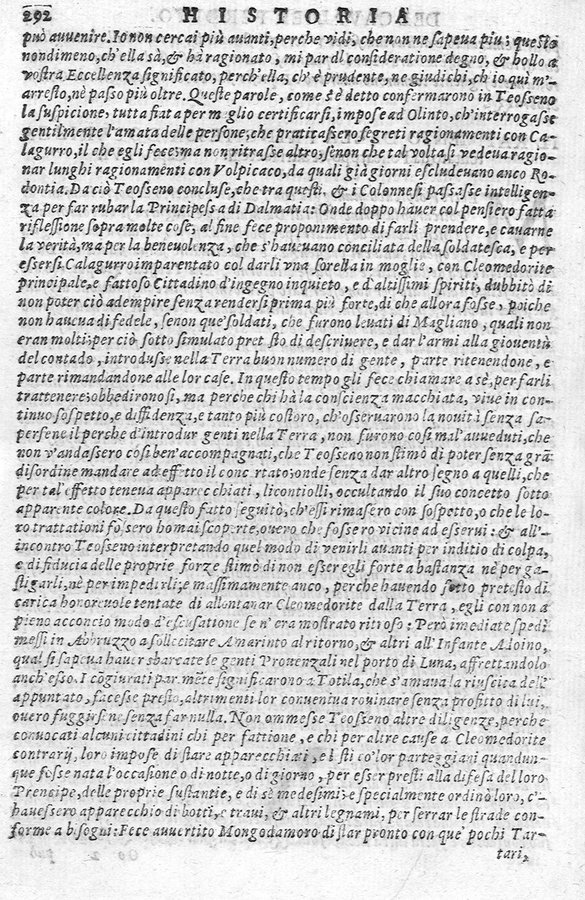 292 HISTORIA
può avvenire. Io non cercai più avanti, perche vidi, che non ne sapeva più; questo
nondimeno, ch'ella sà, & hà ragionato, mi par di consideratione degno, & hollo a
vostra Eccellenza significato, perch'ella, ch'è prudente, ne giudichi, ch'io quì m'-
arresto, nè passo più oltre. Queste parole, come s'è detto confermarono in Teosseno
la suspicione, tutta fiata per meglio certificarsi, impose ad Olinto, ch'interrogasse
gentilmente l'amata delle persone, che praticassero segreti ragionamenti con Ca-
lagurro, il che egli fece; ma non ritrasse altro, senon che tal volta si vedeva ragio-
nar lunghi ragionamenti con Volpicaco, da quali già giorni escludevano anco Ro-
dontia. Da ciò Teosseno concluse, che tra questi, & i Colonnesi passasse intelligen-
za per far rubar la Principessa di Dalmatia: Onde doppo hauer col pensiero fatta
riflessione sopra molte cose, al fine fece proponimento di farli prendere, e cavarne
la verità, ma per la beneuolenza, che s'haueuano conciliata della soldatesca, e per
essersi Calagurro imparentato col darli vna sorella in moglie, con Cleomedorite
principale, e fattoso Cittadino d'ingegno inquieto, e d'altissimi spiriti, dubbitò di
non poter ciò adempire senza rendersi prima più forte, di che allora fosse, poiche
non haueua di fedele, senon que' soldati, che furono leuati di Magliano, quali non
eran molti; per ciò sotto simulato pretesto di descriuere, e dar l'armi alla giouentù
del contado, introdusse nella Terra buon numero di gente, parte ritenendone, e
parte rimandandone alle lor case. In questo tempo gli fece chiamare a sè, per farli
trattenere: obbedironosi, ma perche chi hà la conscienza macchiata, viue in con-
tinuo sospetto, e diffidenza, e tanto più costoro, ch'osseruarono la nouità senza sa-
persene il perche d'introdur genti nella Terra, non furono così mal'aueduti, che
non v'andassero così ben'accompagnati, che Teosseno non stimò di poter senza grã
disordine mandare ad effetto il concertato; onde senza dar altro segno a quelli, che
per tal'effetto teneua apparecchiati, licontiolli, occultando il suo concetto sotto
apparente colore. Da questo fatto seguitò, ch'essi rimasero con sospetto, o che le lo-
ro trattationi fossero homai scoperte, ouero che fossero vicine ad esserui: & all'-
incontro Teosseno interpretando quel modo di venirli auanti per inditio di colpa,
e di fiducia delle proprie forze stimò di non esser egli forte a bastanza nè per ga-
stigarli, nè per impedirli; e massimamente anco, perche hauendo sotto pretesto di
carica honoreuole tentate di allontanar Cleomedorite dalla Terra, egli con non a
pieno acconcio modo d'escusatione se n'era mostrato ritroso: Però imediate spedì
messi in Abbruzzo a sollecitare Amarinto al ritorno, & altri all'Infante Aloino,
qual si sapeua hauer sbarcate le genti Prouenzali nel porto di Luna, affrettandolo
anch'esso. I cõgiurati par mẽte significarono a Totila, che s'amaua la riuscita dell'
appuntato, facesse presto, altrimenti lor conuentua rouinare senza profitto di lui,
ouero fuggirsene senza far nulla. Non ommesse Teosseno altre diligenze, perche
conuocati alcuni cittadini chi per fattione, e chi per altre cause a Cleomedorite
contrarij, loro impose di stare apparecchiati, e lesti co' lor parteggiani quandun-
que fosse nata l'occasione o di notte, o di giorno, per esser presti alla difesa del loro
Prencipe, delle proprie sustantie, e di sè medesimi: e specialmente ordinò loro, c'-
hauessero apparecchio di botti, e traui, & altri legnami, per serrar le strade con-
forme a bisogni: Fece auuertito Mongodamoro di star pronto con que' pochi Tar-
tari,